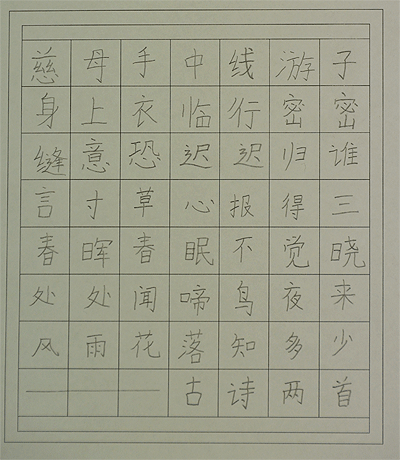 慈母手中线游子
身上衣临行密密
缝意恐迟迟归谁
言寸草心报得三
春晖春眠不觉晓
处处闻啼鸟夜来
风雨花落知多少
———古诗两首